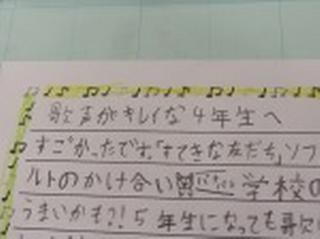 歌声がキレイな4年生へ
すごかったです。「すてきな友だち」ソプ
ルトのかけ合い 学校の
うまいかも?!5年生になっても歌